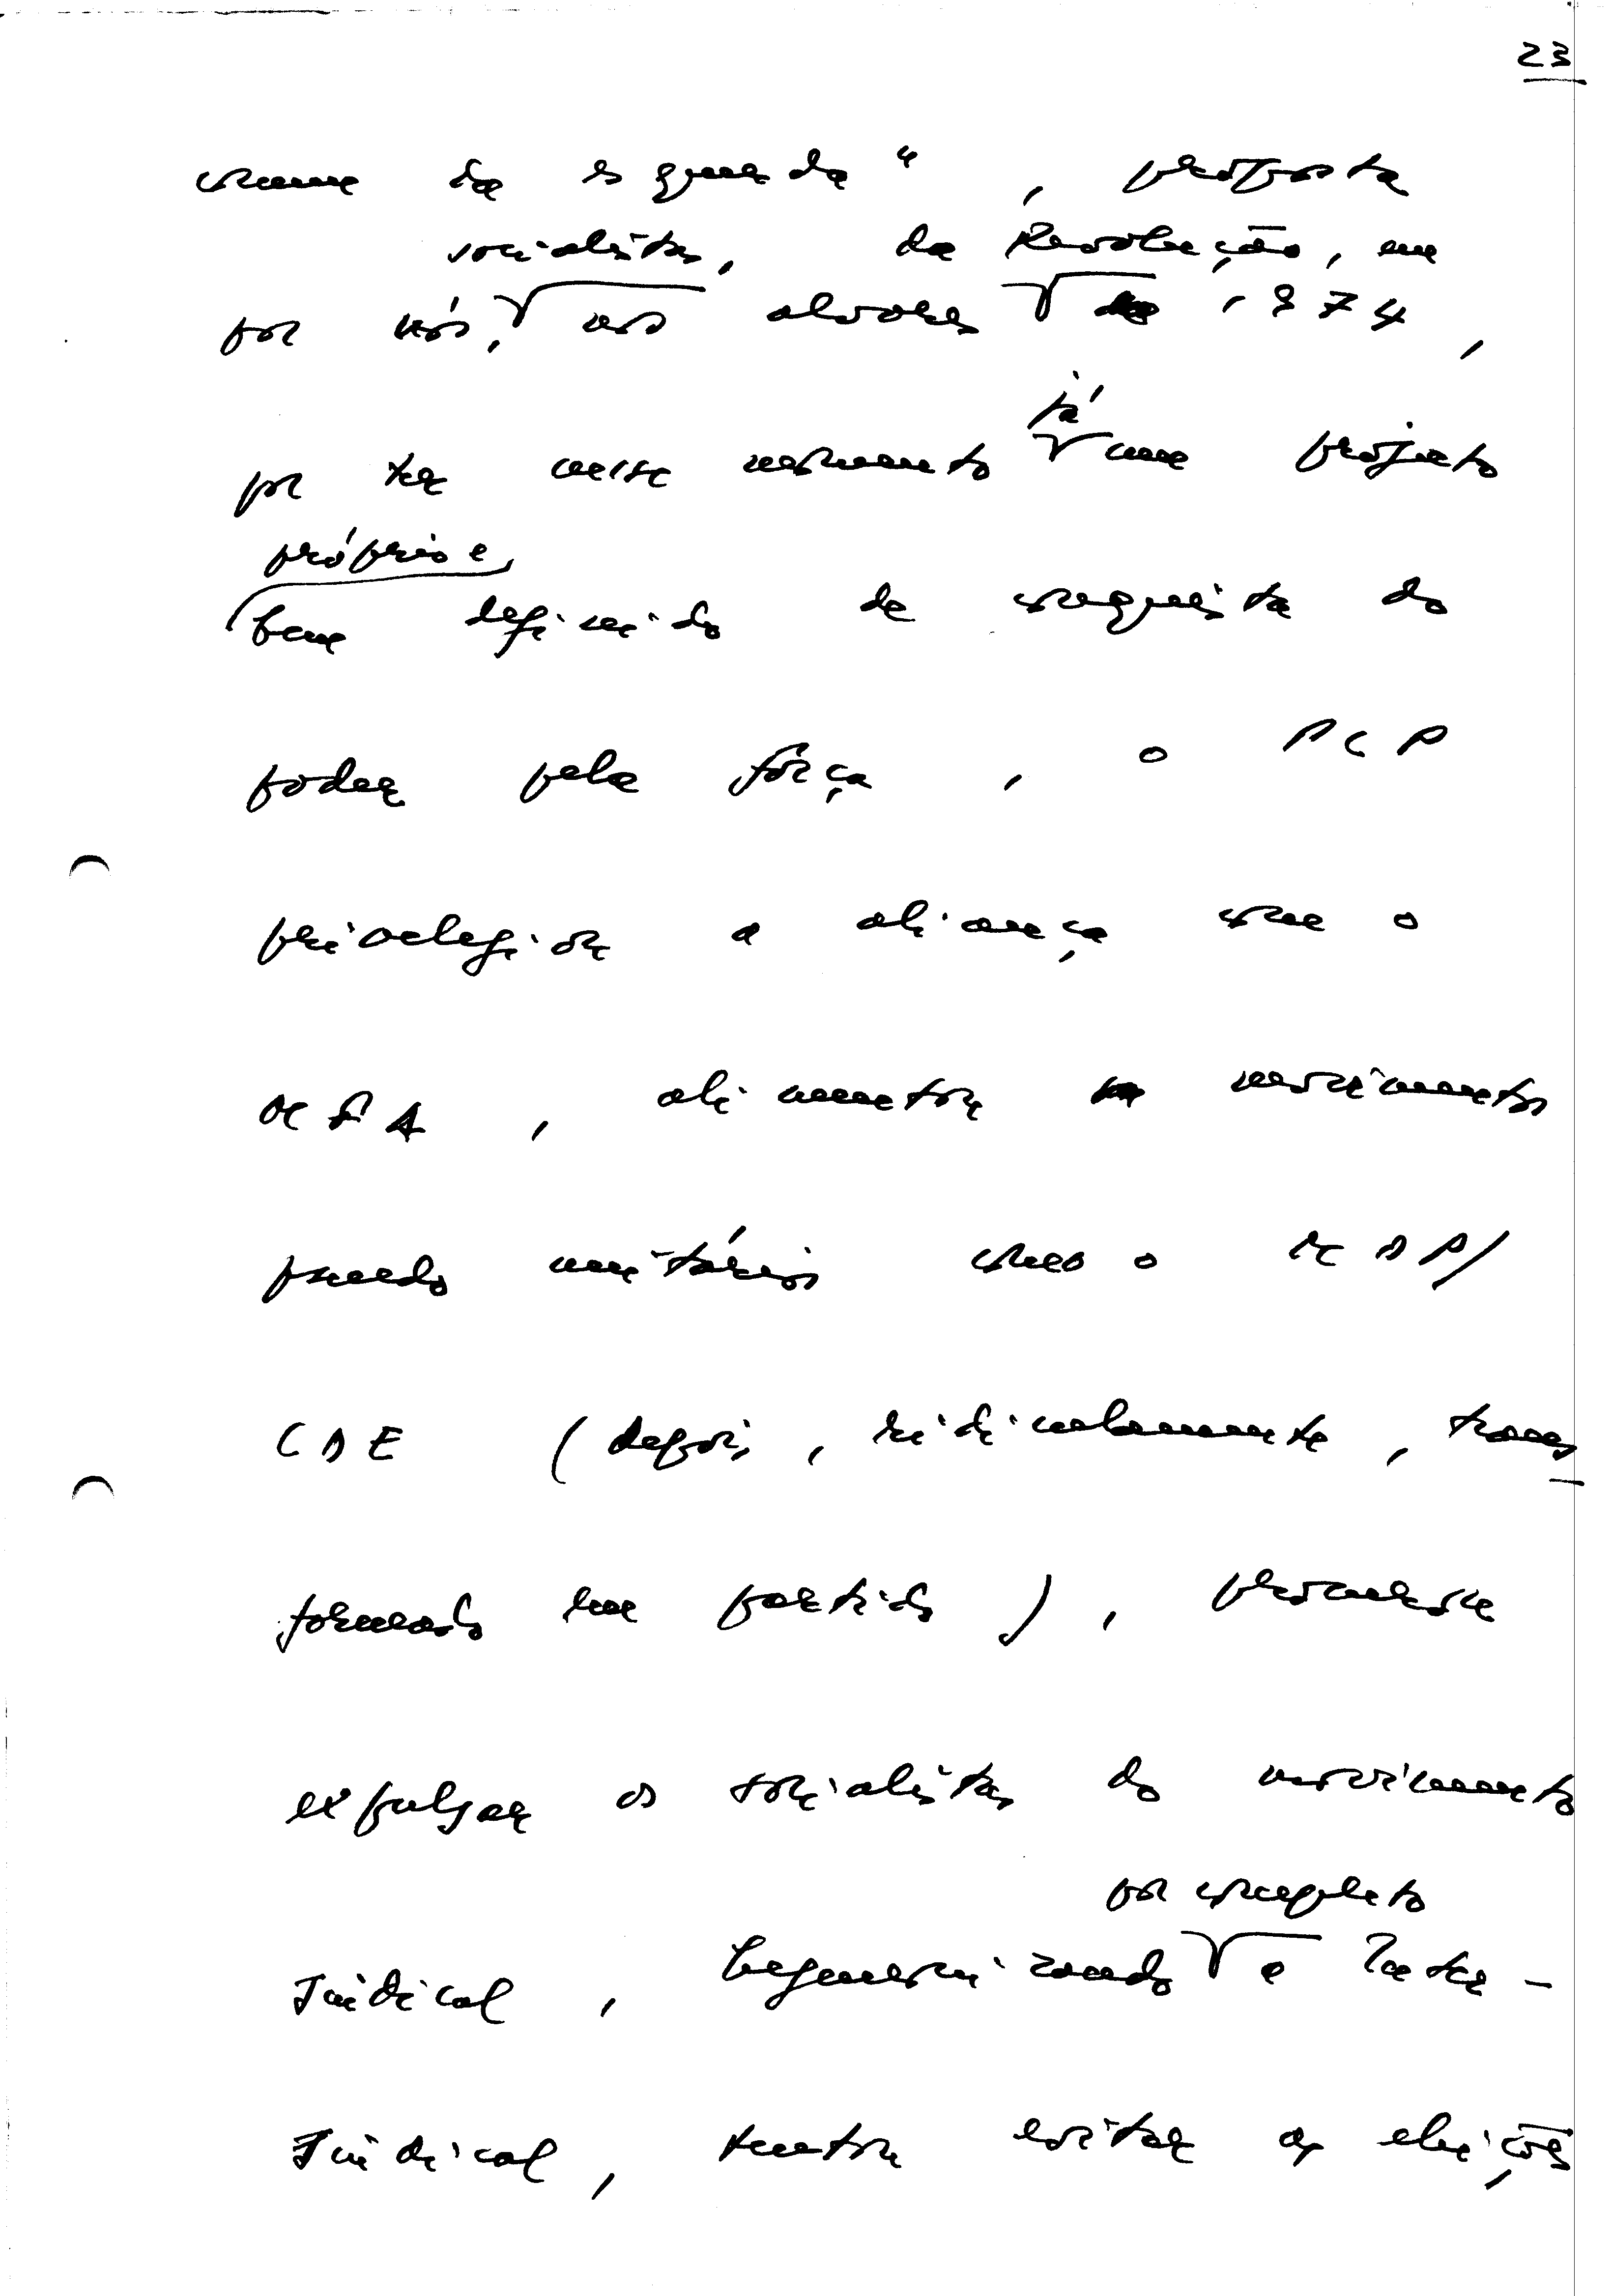 23
comum da esquerda", proposta
socialistas, da Revolução, em
por nós, nos alvores 1974,
já
por ter nesse momento um projeto
próprio e
bem definido de conquista do
poder pela força, o PCP
privilegiou a aliança com o
MFA, alimentou movimentos
pseudo unitários como o MDP/
CDE (depois, ridiculamente, trans-
formado em partido), procurou
expulsar os socialistas do movimento
por completo
sindical, hegemonizando a Inter-
sindical, tentou evitar as eleições